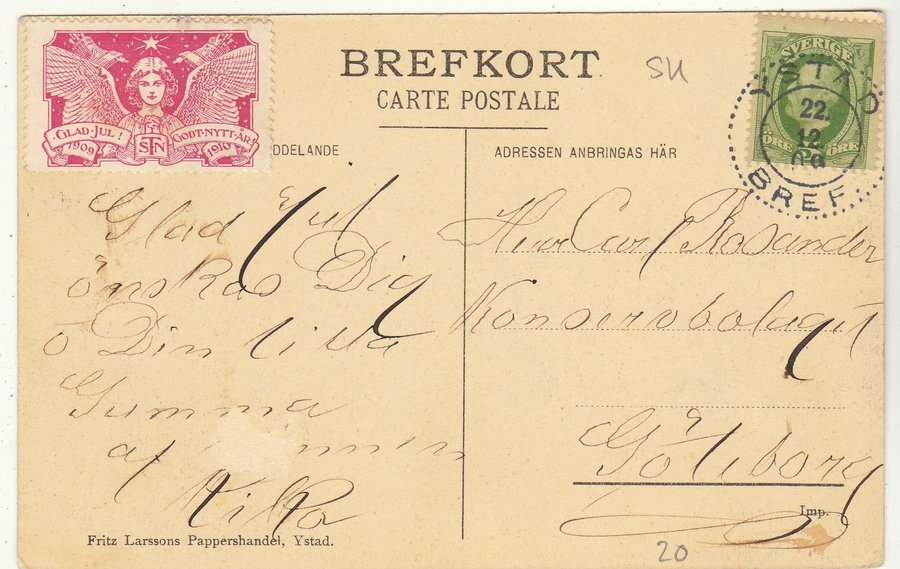 GLAD·JUL!
1909
STN
GODT·NYTT·ÅR!
1910
BREFKORT
CARTE POSTALE
SU
SVERIGE
ÖRE ÖRE
YSTAD
22.
12
BREF.
DDELANDE
ADRESSEN ANBRINGAS HÄR
Glad Jul
önskas Dig
o Din lilla
Gumma
af
Herr Carl Rosander
Konservbolaget
Göteborg
Imp.
Fritz Larssons Pappershandel, Ystad.
20